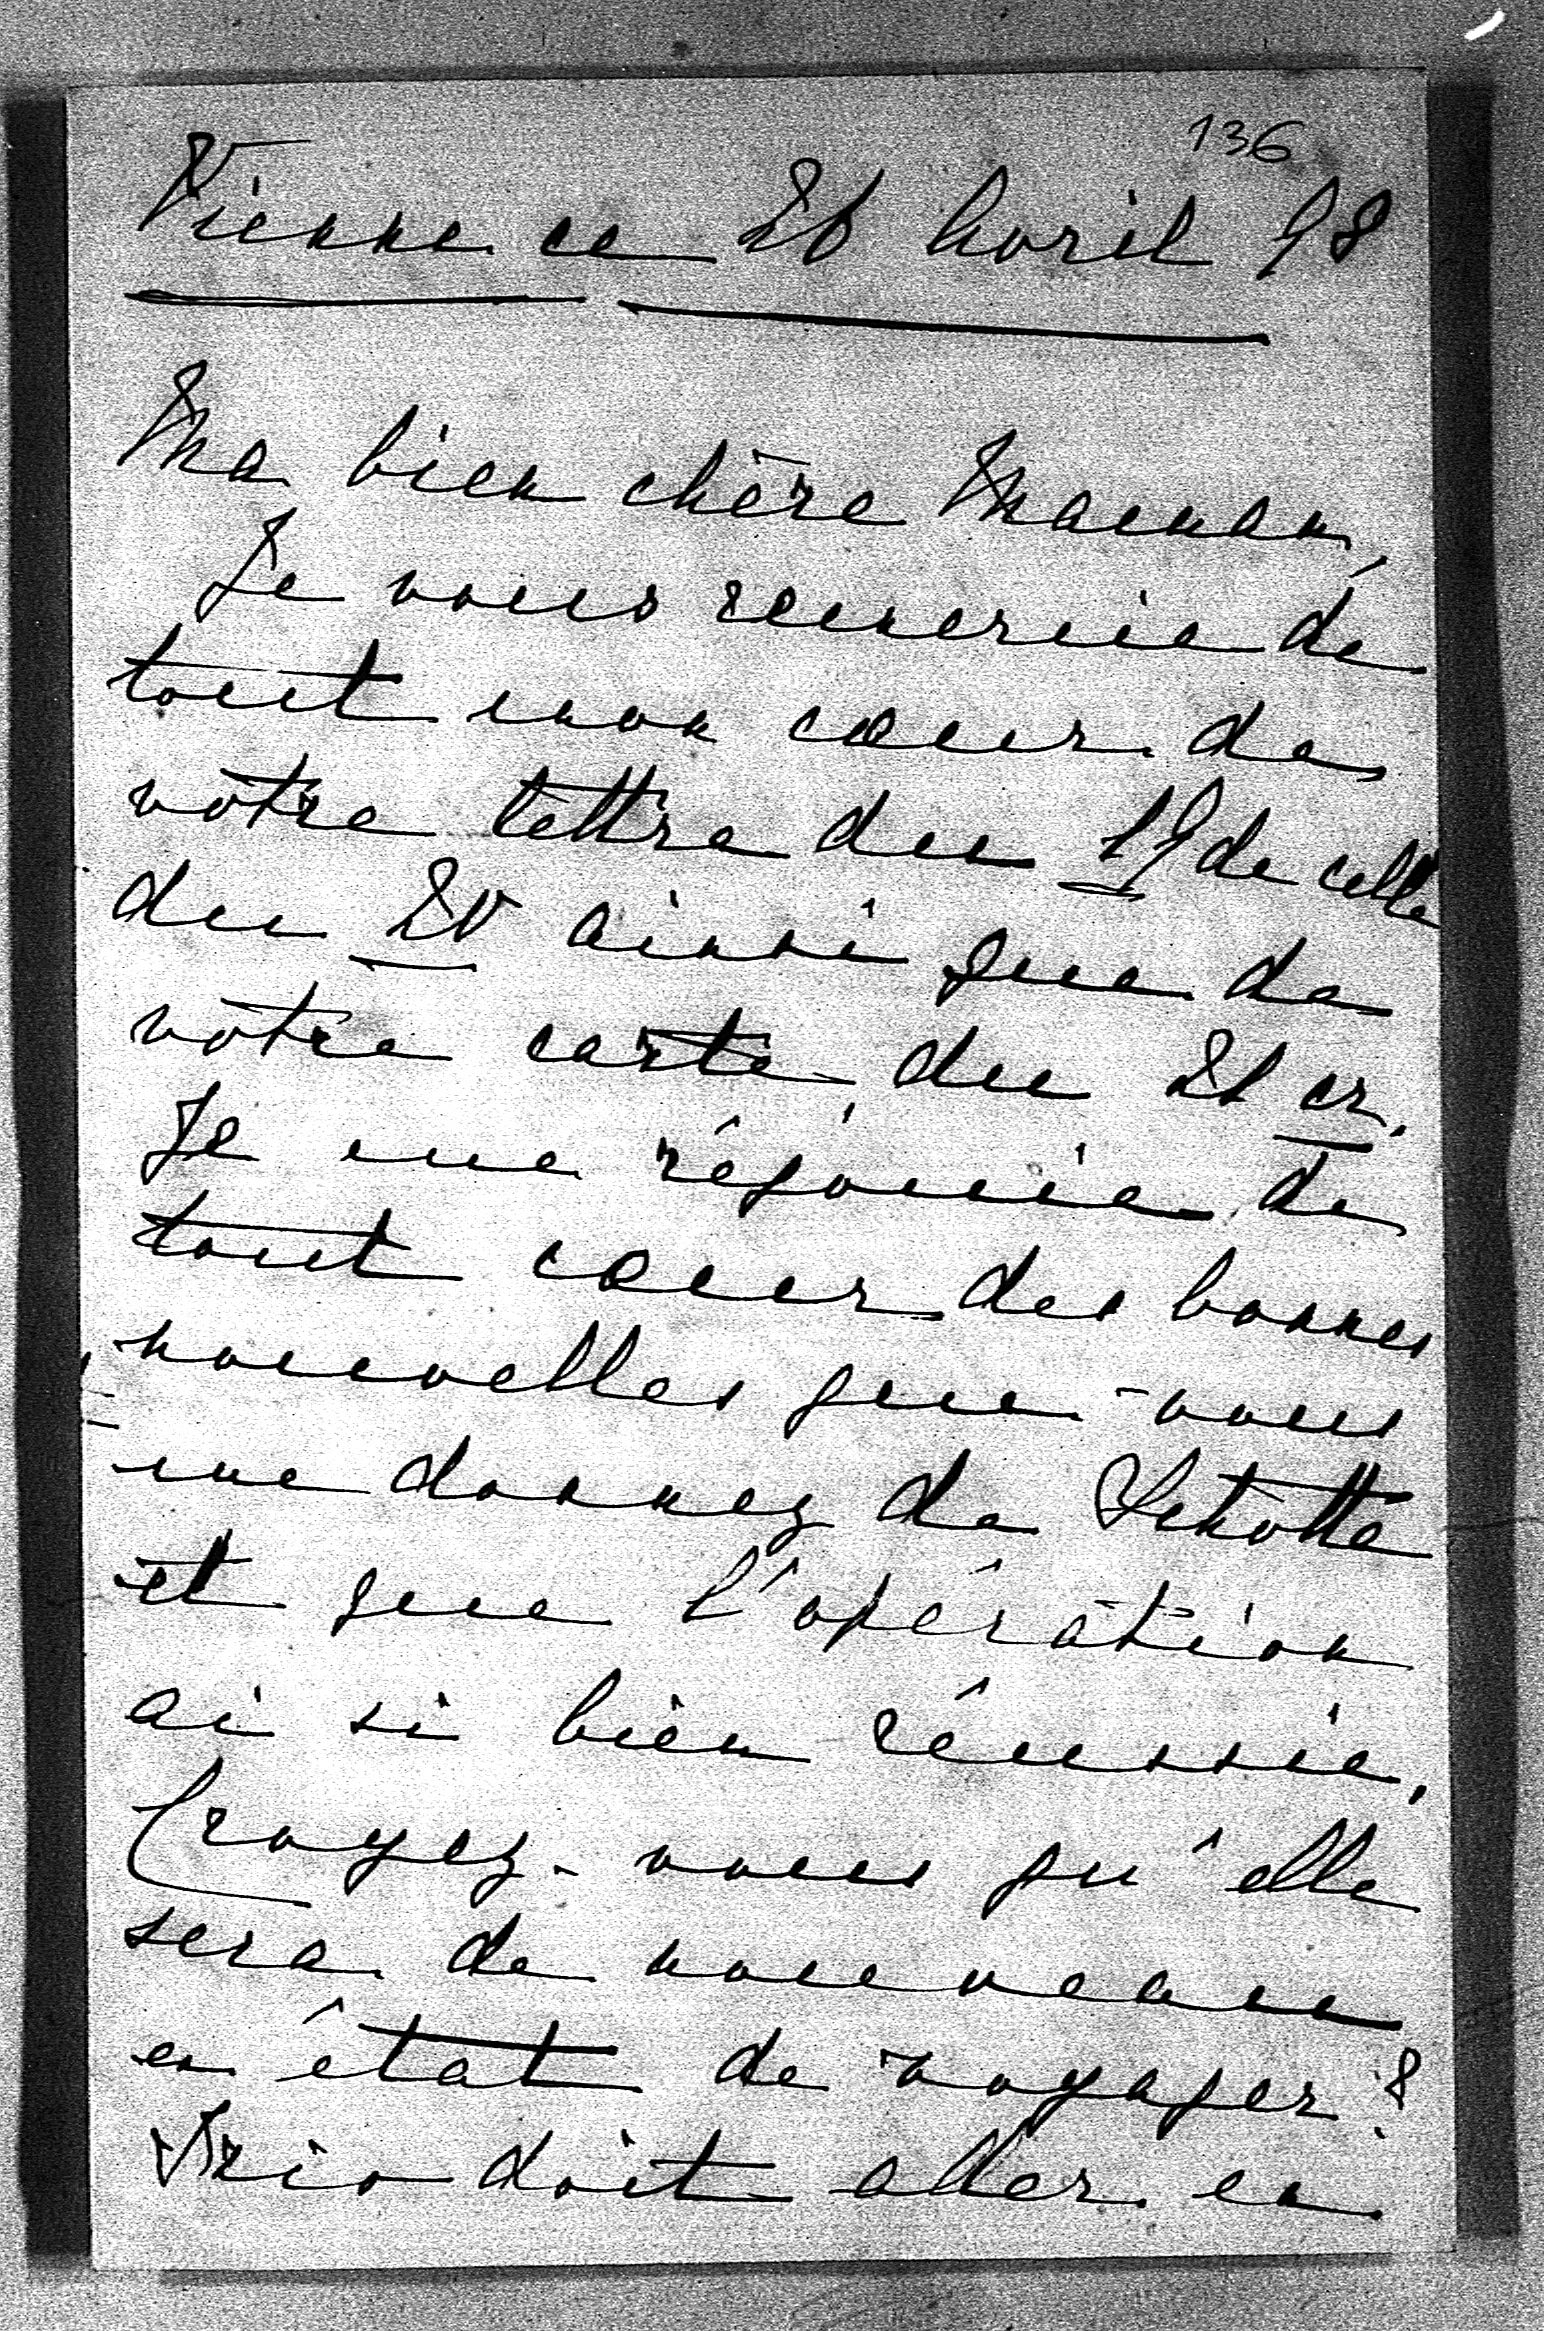 136
Vienne ce 26 Avril 98
Ma bien chère Maman,
Je vous remercie de
tout mon cœur de
votre lettre du 19 de celle
du 20 ainsi que de
votre carte du 21 cr.
Je me réjouie de
tout cœur des bonnes
nouvelles que vous
me donnez de Schotte
et que l'opération
ai si bien réussie,
Croyez-vous qu'elle
sera de nouveau
en état de voyager?
doit aller en